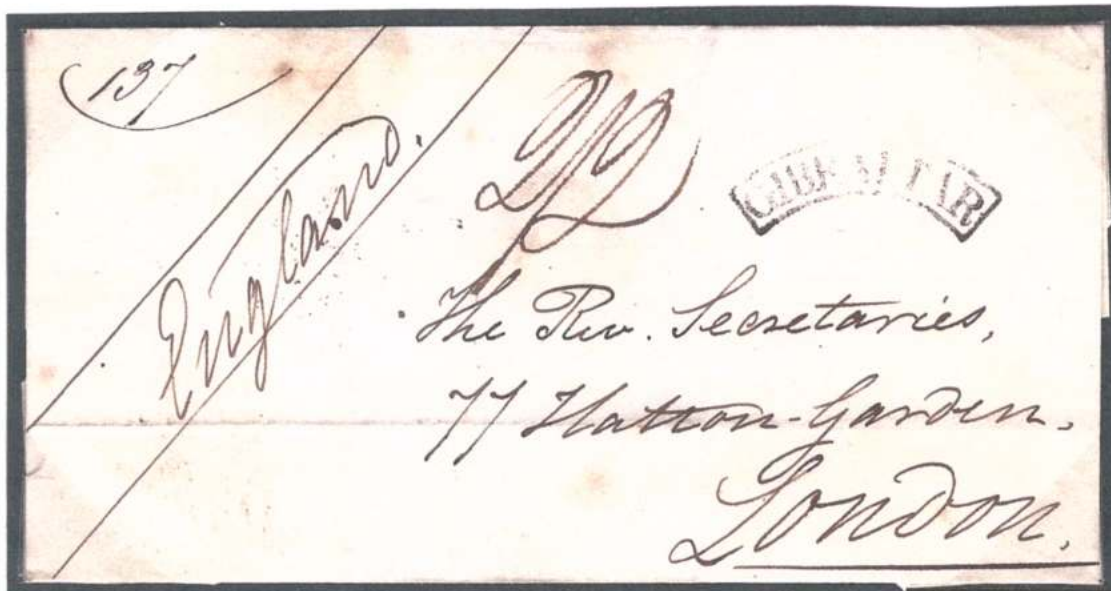 137
England.
2/2
GIBRALTAR
The Rev. Secretaries,
77 Hatton-Garden,
London.